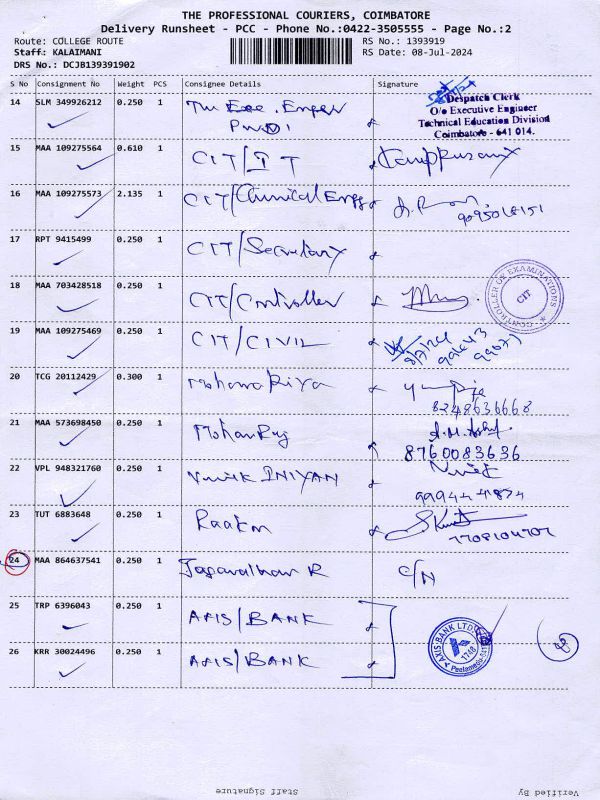 THE PROFESSIONAL COURIERS, COIMBATORE
Delivery Runsheet - PCC - Phone No.:0422-3505555 - Page No.:2
Route: COLLEGE ROUTE RS No.: 1393919
Staff: KALAIMANI RS Date: 08-Jul-2024
DRS No.: DCJB139391902
S No Consignment No Weight PCS Consignee Details Signature
14 SLM 349926212 0.250 1 The Exe. Enger
PWD
Despatch Clerk
O/o Executive Engineer
Technical Education Division
Coimbatore - 641 014.
15 MAA 109275564 0.610 1 CIT/IT
16 MAA 109275573 2.135 1 CIT/Chemical Engg
9095018151
17 RPT 9415499 0.250 1 CIT/Secretary
18 MAA 703428518 0.250 1 CIT/Controller
CONTROLLER OF EXAMINATIONS
CIT
19 MAA 109275469 0.250 1 CIT/CIVIL
20 TCG 20112429 0.300 1 Mohanapriya
8248636668
21 MAA 573698450 0.250 1 MohanRaj
8760083636
22 VPL 948321760 0.250 1 Vinith INIYAN Vinith
99944 41874
23 TUT 6883648 0.250 1
7708104707
24 MAA 864637541 0.250 1 R C/N
25 TRP 6396043 0.250 1 AXIS/BANK
26 KRR 30024496 0.250 1 AXIS/BANK
AXIS BANK LTD
1748
Staff Signature Verified By